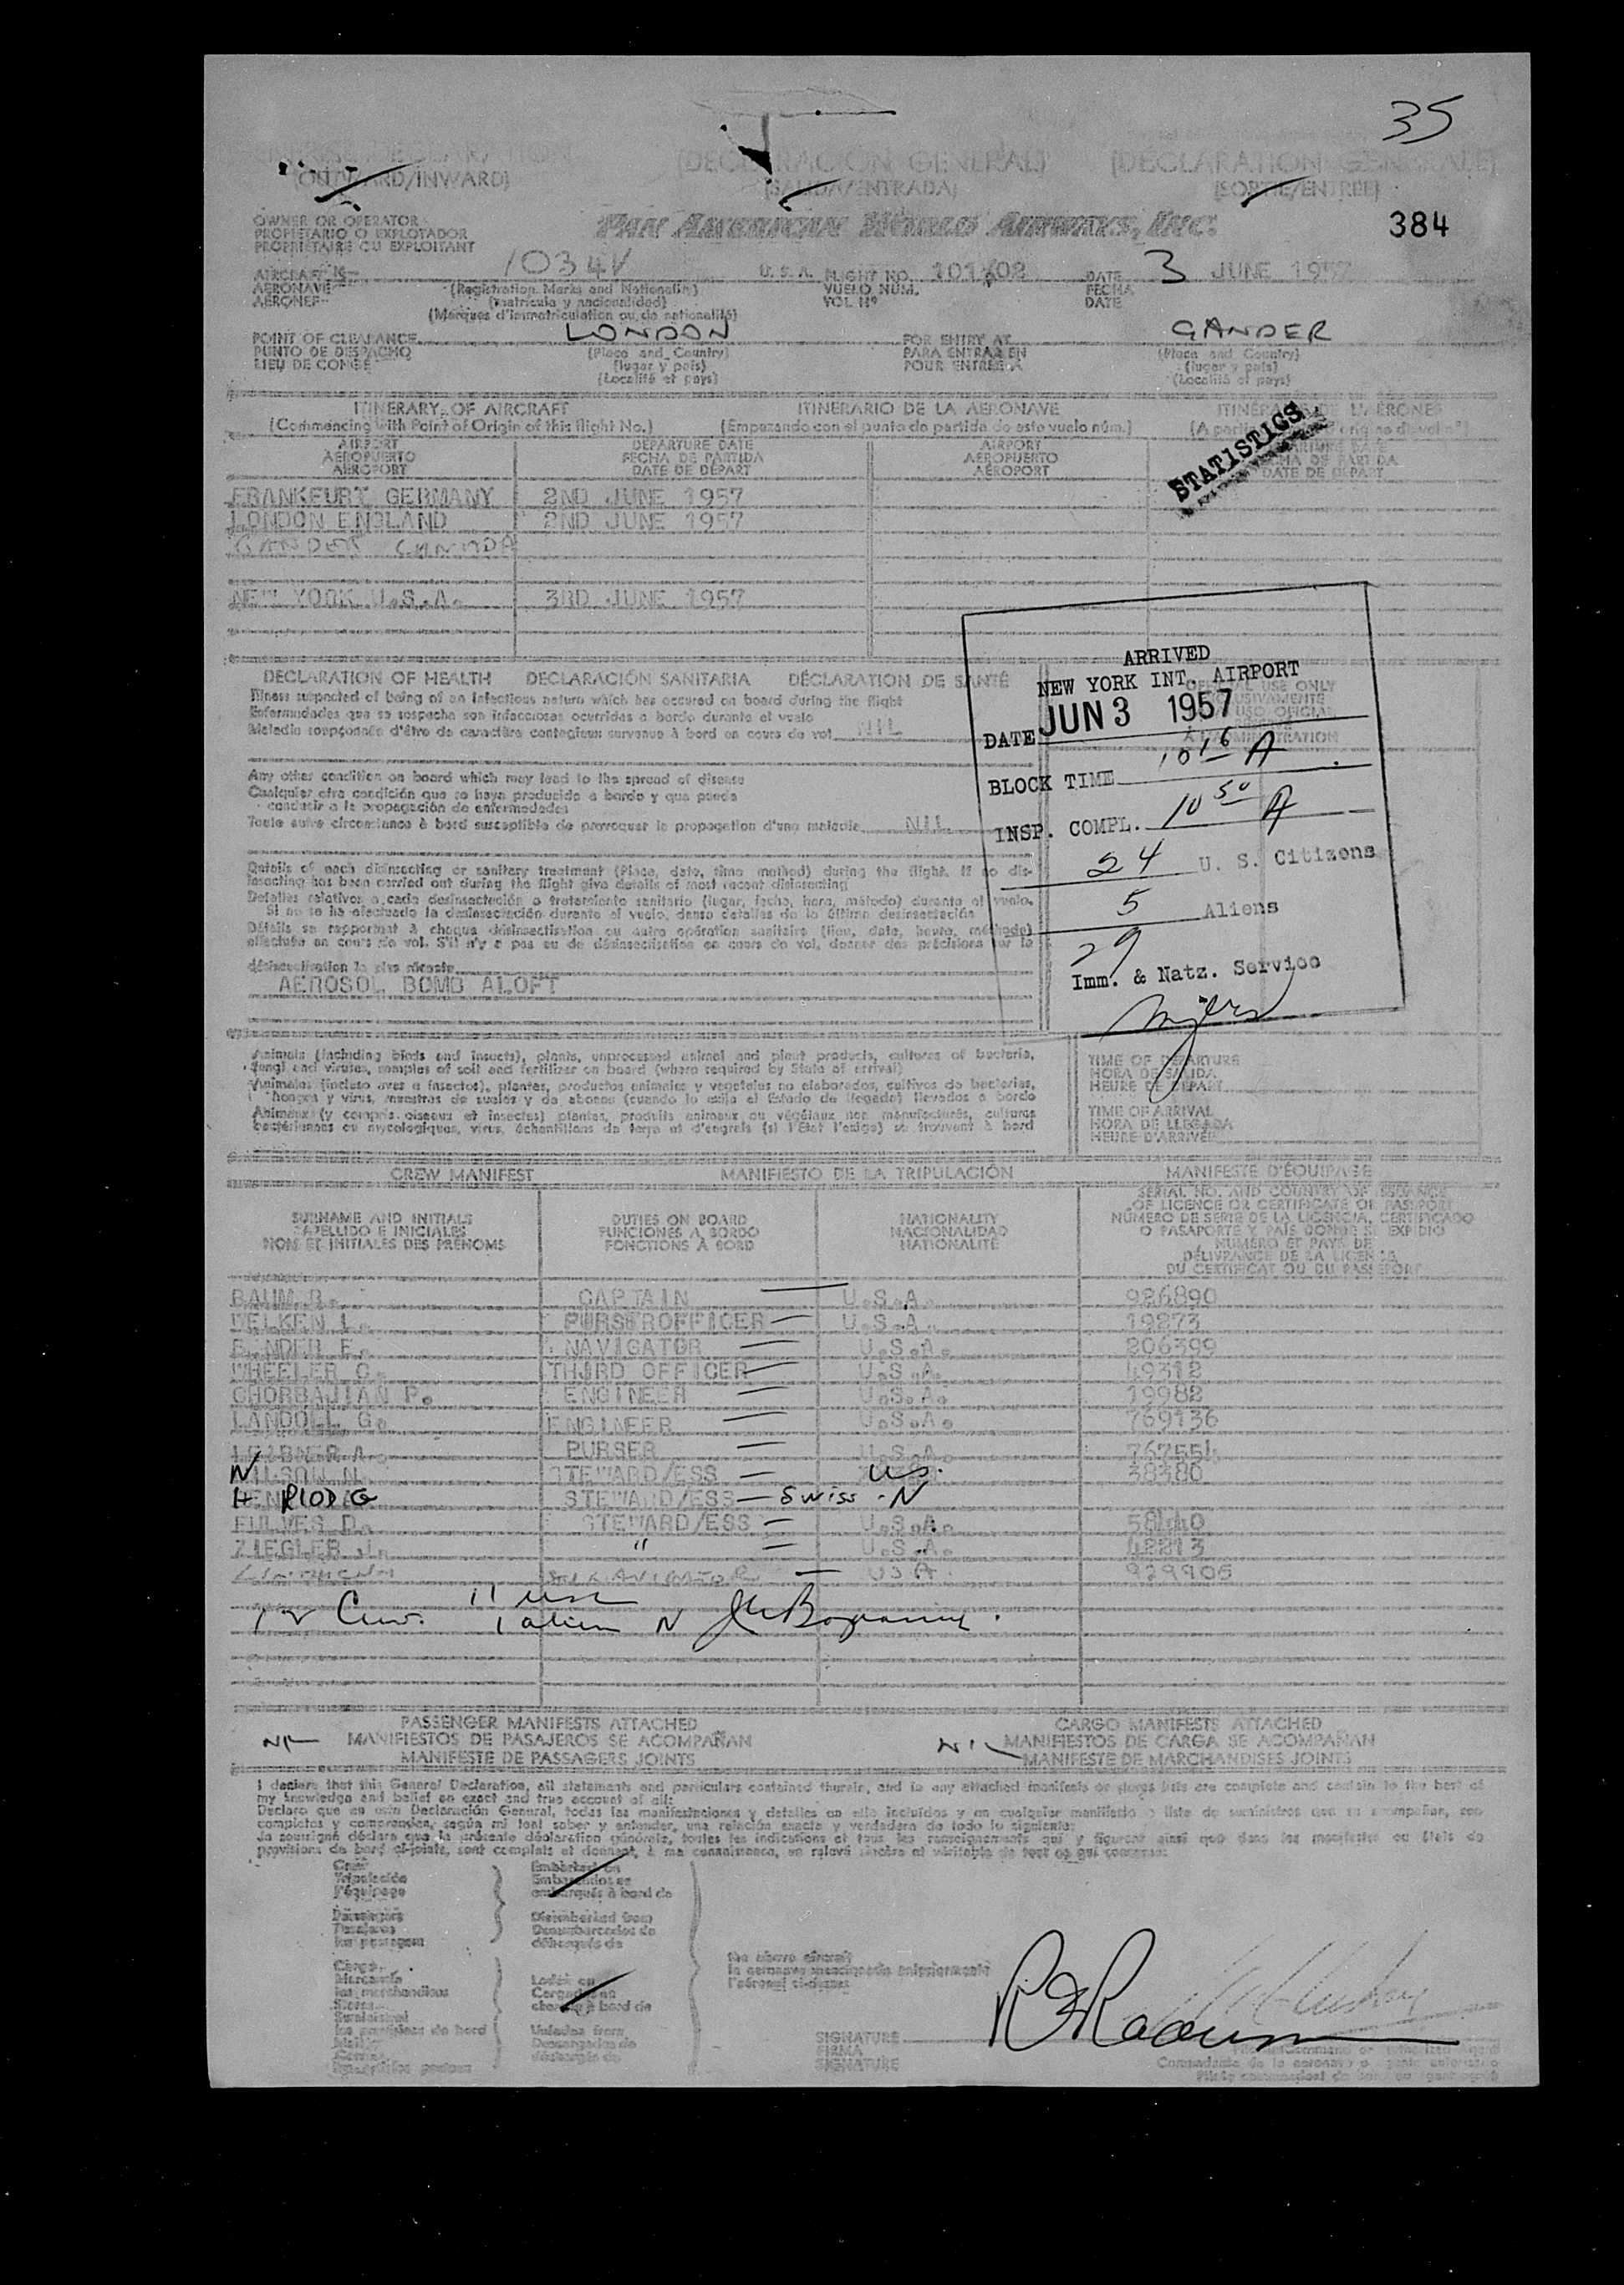 35
(OUTWARD/INWARD)
(DECLARACIÓN GENERAL) (DÉCLARATION GÉNÉRALE)
(SALIDA/ENTRADA) (SORTIE/ENTRÉE)
OWNER OR OPERATOR
PROPIETARIO O EXPLOTADOR
PROPRIÉTAIRE OU EXPLOITANT
PAN AMERICAN WORLD AIRWAYS, INC.
384
AIRCRAFT 1034V U.S.A. FLIGHT NO. DATE 3 JUNE 1957
AERONAVE (Registration Marks and Nationality) VUELO NUM. FECHA
AÉRONEF (matrícula y nacionalidad) VOL Nº DATE
(Marques d'immatriculation ou de nationalité)
POINT OF CLEARANCE LONDON FOR ENTRY AT GANDER
PUNTO DE DESPACHO (Place and Country) PARA ENTRAR EN (Place and Country)
LIEU DE CONGÉ (lugar y país) POUR ENTRÉE À (lugar y país)
(Localité et pays) (Localité et pays)
ITINERARY OF AIRCRAFT ITINERARIO DE LA AERONAVE
(Commencing with Point of Origin of this flight No.) (Empezando con el punto de partida de este vuelo núm.)
STATISTICS
AIRPORT DEPARTURE DATE AIRPORT
AEROPUERTO FECHA DE PARTIDA AEROPUERTO
AÉROPORT DATE DE DÉPART AÉROPORT DATE DE DÉPART
FRANKFURT GERMANY 2ND JUNE 1957
LONDON ENGLAND 2ND JUNE 1957
GANDER CANADA
NEW YORK U.S.A. 3RD JUNE 1957
DECLARATION OF HEALTH DECLARACIÓN SANITARIA DÉCLARATION DE SANTÉ
Illness suspected of being of an infectious nature which has occured on board during the flight
Enfermedades que se sospecha son infecciosas ocurridas a bordo durante el vuelo
Maladie soupçonnée d'être de caractère contagieux survenue à bord en cours de vol NIL
Any other condition on board which may lead to the spread of disease
Cualquier otra condición que se haya producido a bordo y que pueda
conducir a la propagación de enfermedades
Toute autre circonstance à bord susceptible de provoquer la propagation d'une maladie NIL
Details of each disinsecting or sanitary treatment (Place, date, time method) during the flight. If no dis-
insecting has been carried out during the flight give details of most recent disinsecting
Detalles relativos a cada desinsectación o tratamiento sanitario (lugar, fecha, hora, método) durante el vuelo.
Si no se ha efectuado la desinsectación durante el vuelo, dense detalles de la última desinsectación
Détails se rapportant à chaque désinsectisation ou autre opération sanitaire (lieu, date, heure, méthode)
effectuée en cours de vol. S'il n'y a pas eu de désinsectisation en cours de vol, donner des précisions sur la
désinsectisation la plus récente
AEROSOL BOMB ALOFT
ARRIVED
NEW YORK INT. AIRPORT
DATE JUN 3 1957
BLOCK TIME 10 16 A
INSP. COMPL. 10 50 A
24 U. S. Citizens
5 Aliens
29
Imm. & Natz. Service
Animals (including birds and insects), plants, unprocessed animal and plant products, cultures of bacteria,
fungi and viruses, samples of soil and fertilizer on board (where required by State of arrival)
Animales (incluso aves e insectos), plantas, productos animales y vegetales no elaborados, cultivos de bacterias,
hongos y virus, muestras de suelos y de abonos (cuando lo exija el Estado de llegada) llevados a bordo
Animaux (y compris oiseaux et insectes) plantes, produits animaux ou végétaux non manufacturés, cultures
bactériennes ou mycologiques, virus, échantillons de terre et d'engrais (si l'État l'exige) se trouvant à bord
TIME OF DEPARTURE
HORA DE SALIDA
HEURE DE DÉPART
TIME OF ARRIVAL
HORA DE LLEGADA
HEURE D'ARRIVÉE
CREW MANIFEST MANIFIESTO DE LA TRIPULACIÓN MANIFESTE D'ÉQUIPAGE
SURNAME AND INITIALS DUTIES ON BOARD NATIONALITY
APELLIDO E INICIALES FUNCIONES A BORDO NACIONALIDAD
NOM ET INITIALES DES PRÉNOMS FONCTIONS À BORD NATIONALITÉ
SERIAL NO. AND COUNTRY OF ISSUANCE
OF LICENCE OR CERTIFICATE OF PASSPORT
NÚMERO DE SERIE DE LA LICENCIA, CERTIFICADO
O PASAPORTE Y PAÍS DONDE SE EXPIDIÓ
NUMÉRO ET PAYS DE
DÉLIVRANCE DE LA LICENCE
DU CERTIFICAT OU DU PASSEPORT
BAUM R. CAPTAIN U.S.A. 926890
WELKEN L. PURSEROFFICER U.S.A. 19273
BENDER F. NAVIGATOR U.S.A. 206399
WHEELER C. THIRD OFFICER U.S.A. 49312
CHORBAJIAN P. ENGINEER U.S.A. 19982
LANDOLL G. ENGINEER U.S.A. 769136
PURSER U.S.A. 767554
WILSON N. STEWARD/ESS U.S. 38380
HENRIOD G STEWARD/ESS Swiss - N
FULVES D. STEWARD/ESS U.S.A.
ZIEGLER J. " U.S.A.
USA 929906
12 Crew. 11 usc
1 alien N
PASSENGER MANIFESTS ATTACHED CARGO MANIFESTS ATTACHED
NIL MANIFIESTOS DE PASAJEROS SE ACOMPAÑAN NIL MANIFIESTOS DE CARGA SE ACOMPAÑAN
MANIFESTE DE PASSAGERS JOINTS MANIFESTE DE MARCHANDISES JOINTS
I declare that this General Declaration, all statements and particulars contained therein, and in any attached manifests or stores lists are complete and contain to the best of
my knowledge and belief an exact and true account of all:
Declaro que en esta Declaración General, todas las manifestaciones y detalles en ella incluídos y en cualquier manifiesto o lista de suministros que se acompañan, son
completos y comprenden, según mi leal saber y entender, una relación exacta y verdadera de todo lo siguiente:
Je soussigné déclare que la présente déclaration générale, toutes les indications et tous les renseignements qui y figurent ainsi que dans les manifestes ou états de
provisions de bord ci-joints, sont complets et donnent, à ma connaissance, un relevé sincère et véritable de tout ce qui concerne:
Crew Embarked on
Tripulación Embarcados en
l'équipage embarqués à bord de
Passengers Disembarked from
Pasajeros Desembarcados de
les passagers débarqués de
Cargo
Mercancía Loaded on
les marchandises Cargados en
Stores chargés à bord de
Suministros
les provisions de bord Unloaded from
Descargados de
déchargés de
the above aircraft
la aeronave mencionada anteriormente
l'aéronef ci-dessus
SIGNATURE
FIRMA
SIGNATURE